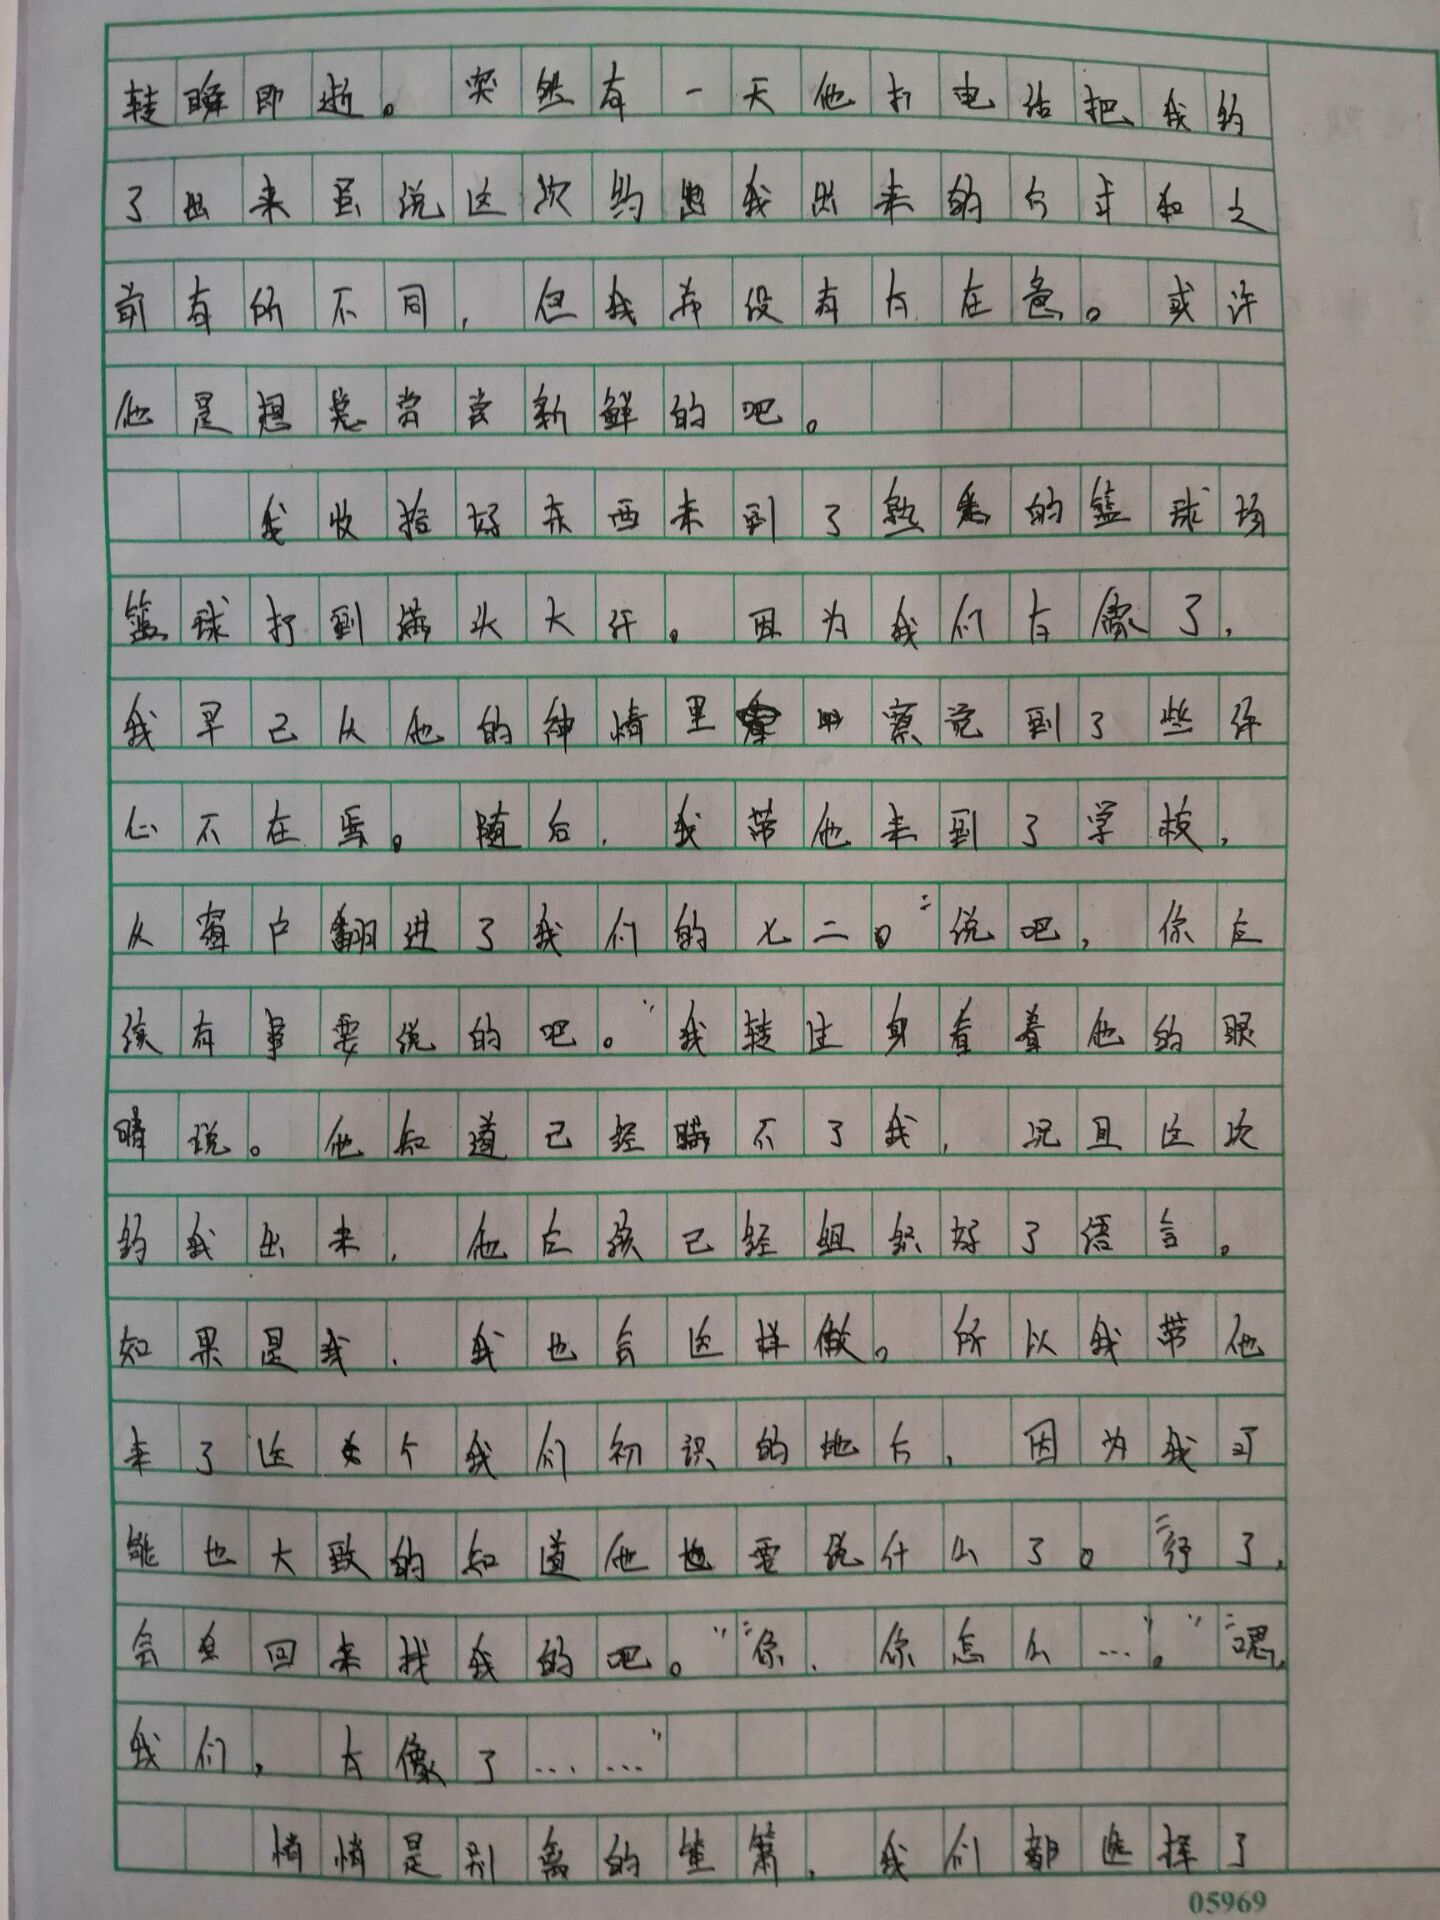 转瞬即逝。突然有一天他打电话把我约
了出来虽说这次约我出来的方式和之
前有所不同，但我并没有太在意。或许
他是想尝尝新鲜的吧。
我收拾好东西来到了熟悉的篮球场
篮球打到满头大汗。因为我们太像了，
我早已从他的神情里察觉到了些许
心不在焉。随后，我带他来到了学校，
从窗户翻进了我们的七二。“说吧，你应
该有事要说的吧。”我转过身看着他的眼
睛说。他知道已经瞒不了我，况且这次
约我出来，他应该已经组织好了语言。
如果是我，我也会这样做。所以我带他
来了这个我们初识的地方，因为我可
能也大致的知道他要说什么了。“行了，
会回来找我的吧。”“你，你怎么…。”“嗯，
我们，太像了……”
悄悄是别离的笙箫，我们都选择了
05969